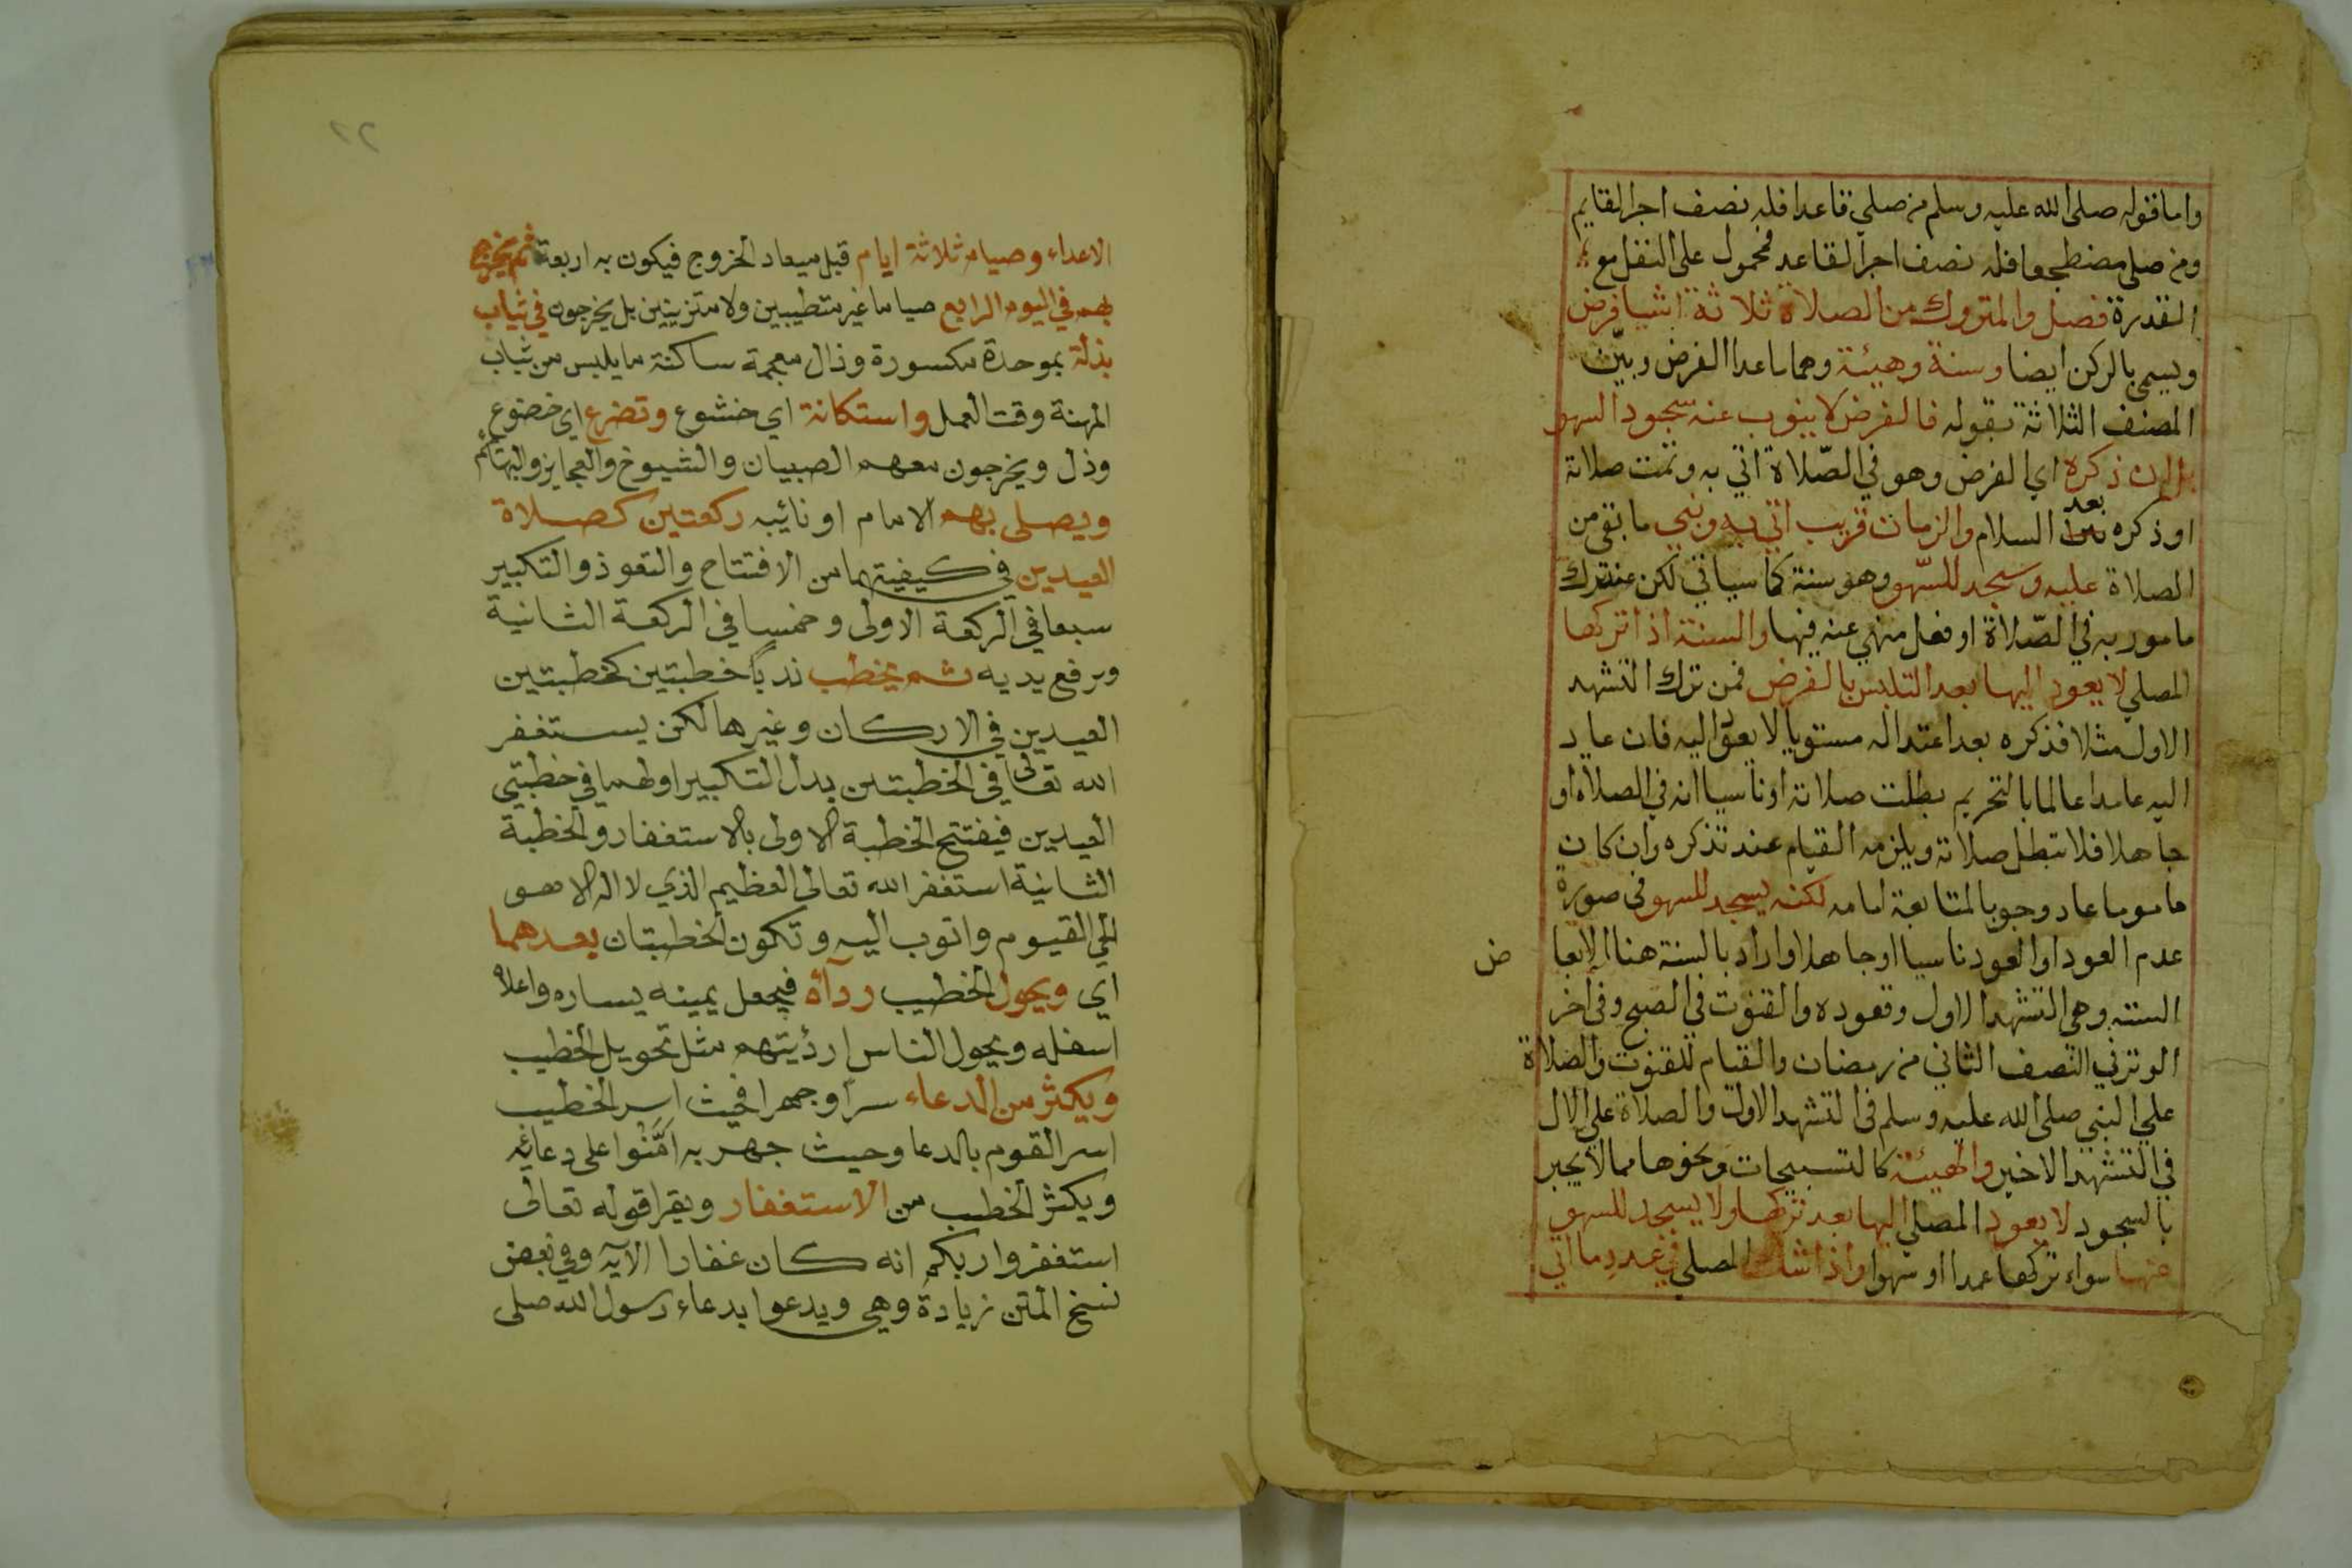 واما قوله صلى الله عليه وسلم من صلي قاعدا فله نصف اجر القايم
ومن صلى مضطجعا فله نصف اجر القاعد فمحمول على النفل مع
القدرة فصل والمتروك من الصلاة ثلاثة اشيا فرض
ويسمى بالركن ايضا وسنة وهيئة وهما ما عدا الفرض وبيّن
المصنف الثلاثة بقوله فالفرض لا ينوب عنه سجود السهو
بل ان ذكره اي الفرض وهو في الصّلاة اتي به وتمت صلاته
او ذكره بعد السلام والزمان قريب اتي به وبني ما بقي من
الصلاة عليه وسجد للسّهو وهو سنة كما سياتي لكن عند ترك
مامور به في الصّلاة او فعل منهي عنه فيها والسنة اذا تركها
المصلي لا يعود اليها بعد التلبس بالفرض فمن ترك التشهد
الاول مثلا فذكره بعد اعتداله مستويا لا يعود اليه فان عاد
اليه عامدا عالما بالتحريم بطلت صلاته او ناسيا انه في الصلاة او
جاهلا فلا تبطل صلاته ويلزمه القيام عند تذكره وان كان
ماموما عاد وجوبا لمتابعة امامه لكنه يسجد للسهو في صورة
عدم العود او العود ناسيا او جاهلا واراد بالسنة هنا الابعا ض
الستة وهي التشهد الاول وقعوده والقنوت في الصبح وفي اخر
الوتر في النصف الثاني من رمضان والقيام للقنوت والصلاة
علي النبي صلى الله عليه وسلم في التشهد الاول والصلاة علي الال
في التشهد الاخير والهيئة كالتسبيحات ونحوها مما لا يجبر
بالسجود لا يعود المصلي اليها بعد تركها ولا يسجد للسهو
عنها سواء تركها عمدا او سهوا واذا شك المصلي في عدد ما اتي
٢٢
الاعداء وصيام ثلاثة ايام قبل ميعاد الخروج فيكون به اربعة ثم يخرج
بهم في اليوم الرابع صياما غير متطيبين ولا متزينين بل يخرجون في ثياب
بذلة بموحدة مكسورة وذال معجمة ساكنة ما يلبس من ثياب
المهنة وقت العمل واستكانة اي خشوع وتضرع اي خضوع
وذل ويخرجون معهم الصبيان والشيوخ والعجايز والبهائم
ويصلى بهم الامام او نائيبه ركعتين كصلاة
العيدين في كيفيتهما من الافتتاح والتعوذ والتكبير
سبعا في الركعة الاولى وخمسا في الركعة الثانية
وبرفع يديه ثم يخطب ندبًا خطبتين كخطبتين
العيدين في الاركان وغيرها لكن يستغفر
الله تعالى في الخطبتين بدل التكبير اولهما في خطبتي
العيدين فيفتتح الخطبة الاولى بالاستغفار والخطبة
الثانية استغفر الله تعالى العظيم الذي لا اله الا هو
الحي القيوم واتوب اليه وتكون الخطبتان بعدهما
اي ويحول الخطيب ردآه فيجعل يمينه يساره واعلاه
اسفله ويحول الناس ارديتهم مثل تحويل الخطيب
ويكثر من الدعاء سرا وجهرا فحيث اسر الخطيب
اسر القوم بالدعا وحيث جهر به امَّنُوا على دعائه
ويكثر الخطب من الاستغفار ويقرا قوله تعالى
استغفروا ربكم انه كان غفارا الآيه وفي بعض
نسخ المتن زيادة وهي ويدعوا بدعاء رسول الله صلى